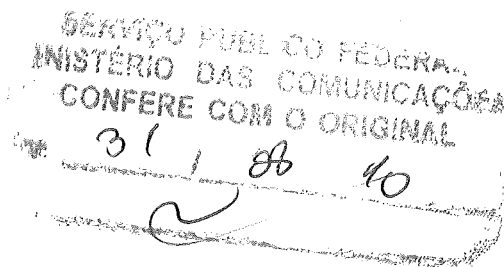 SERVIÇO PUBLICO FEDERAL
MINISTÉRIO DAS COMUNICAÇÕES
CONFERE COM O ORIGINAL
31 / 08 10